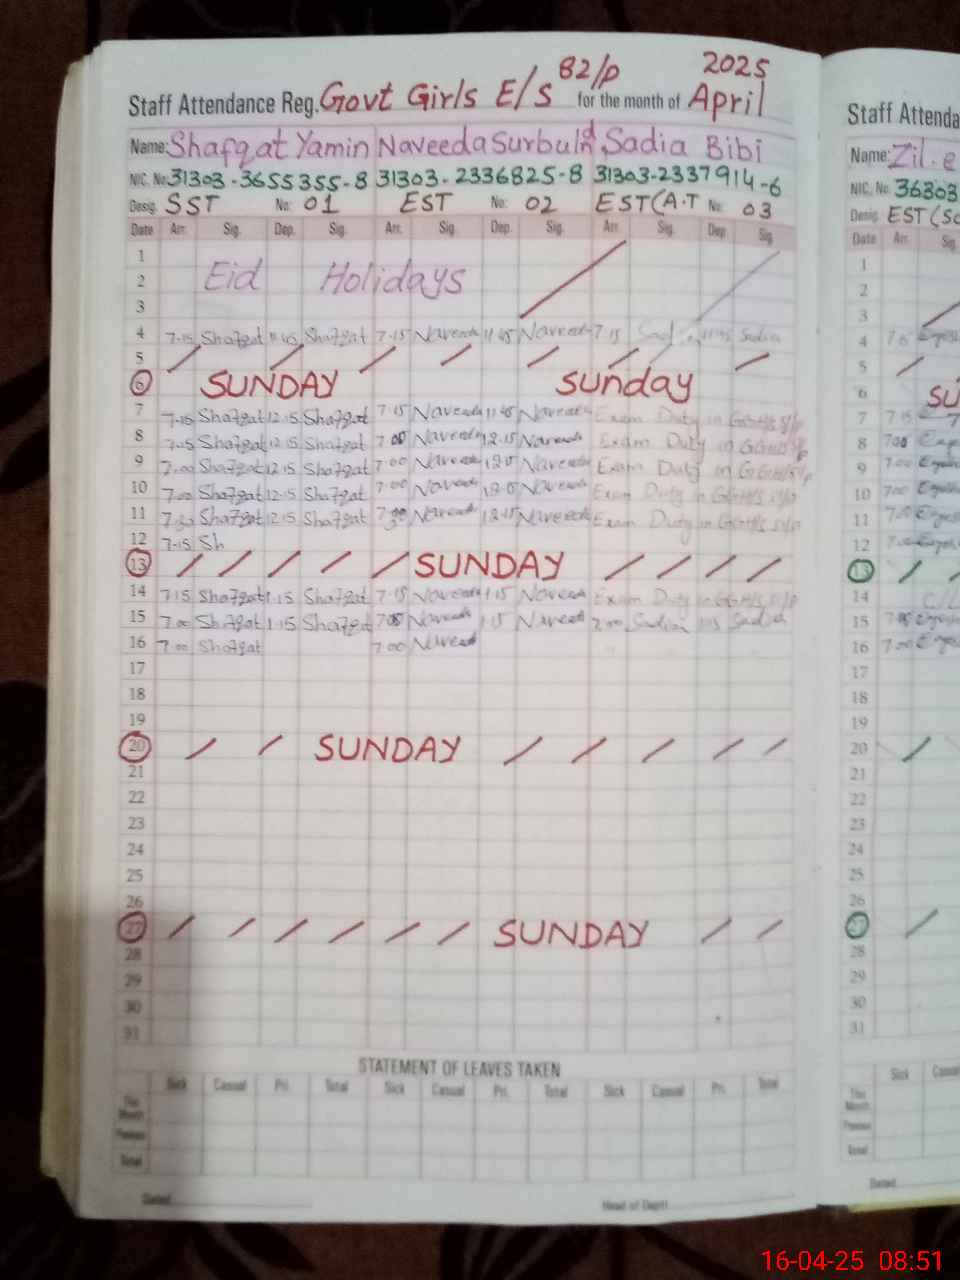 2025
Staff Attendance Reg. Govt Girls E/S 82/p for the month of April
Name: Shafqat Yamin Naveeda Surbuland Sadia Bibi
NIC. No. 31303-3655355-8 31303-2336825-8 31303-2337914-6
Desig. SST No: 01 EST No: 02 EST(A.T No: 03
Date Arr. Sig. Dep. Sig. Arr. Sig. Dep. Sig. Arr. Sig. Dep. Sig.
1
2 Eid Holidays
3
4 7-15 Shafqat 11.45 Shafqat 7-15 Naveeda 11.45 Naveeda 7.15 Sadia
5
6 SUNDAY Sunday
7 7-15 Shafqat 12.15 Shafqat 7.15 Naveeda 11.45 Naveeda Exam Duty in
8 Shafqat 12.15 Shafqat 7.00 Naveeda 12.15 Naveeda Exam Duty in
9 7.00 Shafqat 12.15 Shafqat 7.00 Naveeda Naveeda Exam Duty in
10 7.00 Shafqat 12.15 Shafqat 7.00 Naveeda Naveeda Exam Duty in
11 Shafqat 12.15 Shafqat Naveeda 12.15 Naveeda Exam Duty in
12 7-15 Sh
13 SUNDAY
14 7.15 Shafqat 1.15 Shafqat 7.15 Naveeda 1.15 Naveeda Exam Duty in
15 7.00 Shafqat 1.15 Shafqat 7.00 Naveeda 1.15 Naveeda 7.00 Sadia 1.15 Sadia
16 7.00 Shafqat 7.00 Naveeda
17
18
19
20 SUNDAY
21
22
23
24
25
26
27 SUNDAY
28
29
30
31
STATEMENT OF LEAVES TAKEN
Sick Casual Pri. Total Sick Casual Pri. Total Sick Casual Pri. Total
This Month
Previous
Total
Dated Head of Deptt.
Staff Attenda
Name: Zil.e
NIC. No. 36303
Desig. EST (Sc
Date Arr. Sig.
1
2
3
4
5
6 SU
7 7.15
8 7.00
9 7.00
10 7.00
11
12
13
14 C/L
15
16 7.00
17
18
19
20
21
22
23
24
25
26
27
28
29
30
31
Sick Casual
This Month
Previous
Total
Dated
16-04-25 08:51